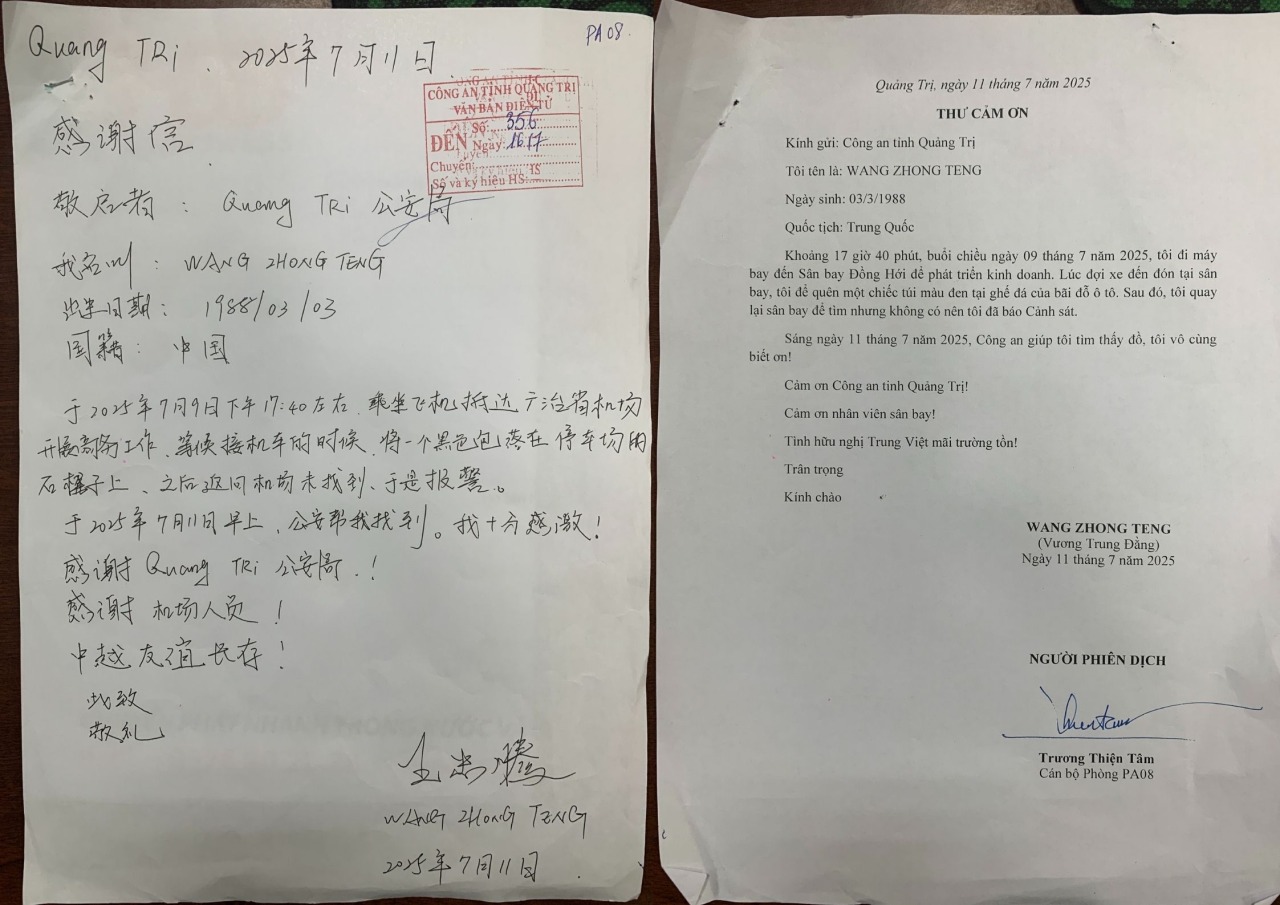 Quang TRi . 2025年7月11日.
PA08.
CÔNG AN TỈNH QUẢNG TRỊ
VĂN BẢN ĐIỆN TỬ
ĐẾN
Số: 356
Ngày: 16.17
Chuyển:
Số và ký hiệu HS:
感谢信
敬启者 : Quang TRi 公安局
我名叫 : WANG ZHONG TENG
出生日期: 1988/03/03
国籍: 中国
于2025年7月9日下午17:40左右,乘坐飞机抵达广治省机场
开展商务工作、等候接机车的时候、将一个黑色包落在停车场的
石櫈子上、之后返回机场未找到、于是报警。
于2025年7月11日早上、公安帮我找到。我十分感激!
感谢 Quang TRi 公安局.!
感谢 机场人员 !
中越友谊长存!
此致
敬礼
王忠腾
WANG ZHONG TENG
2025年7月11日.
Quảng Trị, ngày 11 tháng 7 năm 2025
THƯ CẢM ƠN
Kính gửi: Công an tỉnh Quảng Trị
Tôi tên là: WANG ZHONG TENG
Ngày sinh: 03/3/1988
Quốc tịch: Trung Quốc
Khoảng 17 giờ 40 phút, buổi chiều ngày 09 tháng 7 năm 2025, tôi đi máy
bay đến Sân bay Đồng Hới để phát triển kinh doanh. Lúc đợi xe đến đón tại sân
bay, tôi để quên một chiếc túi màu đen tại ghế đá của bãi đỗ ô tô. Sau đó, tôi quay
lại sân bay để tìm nhưng không có nên tôi đã báo Cảnh sát.
Sáng ngày 11 tháng 7 năm 2025, Công an giúp tôi tìm thấy đồ, tôi vô cùng
biết ơn!
Cảm ơn Công an tỉnh Quảng Trị!
Cảm ơn nhân viên sân bay!
Tình hữu nghị Trung Việt mãi trường tồn!
Trân trọng
Kính chào
WANG ZHONG TENG
(Vương Trung Đằng)
Ngày 11 tháng 7 năm 2025
NGƯỜI PHIÊN DỊCH
Trương Thiện Tâm
Cán bộ Phòng PA08